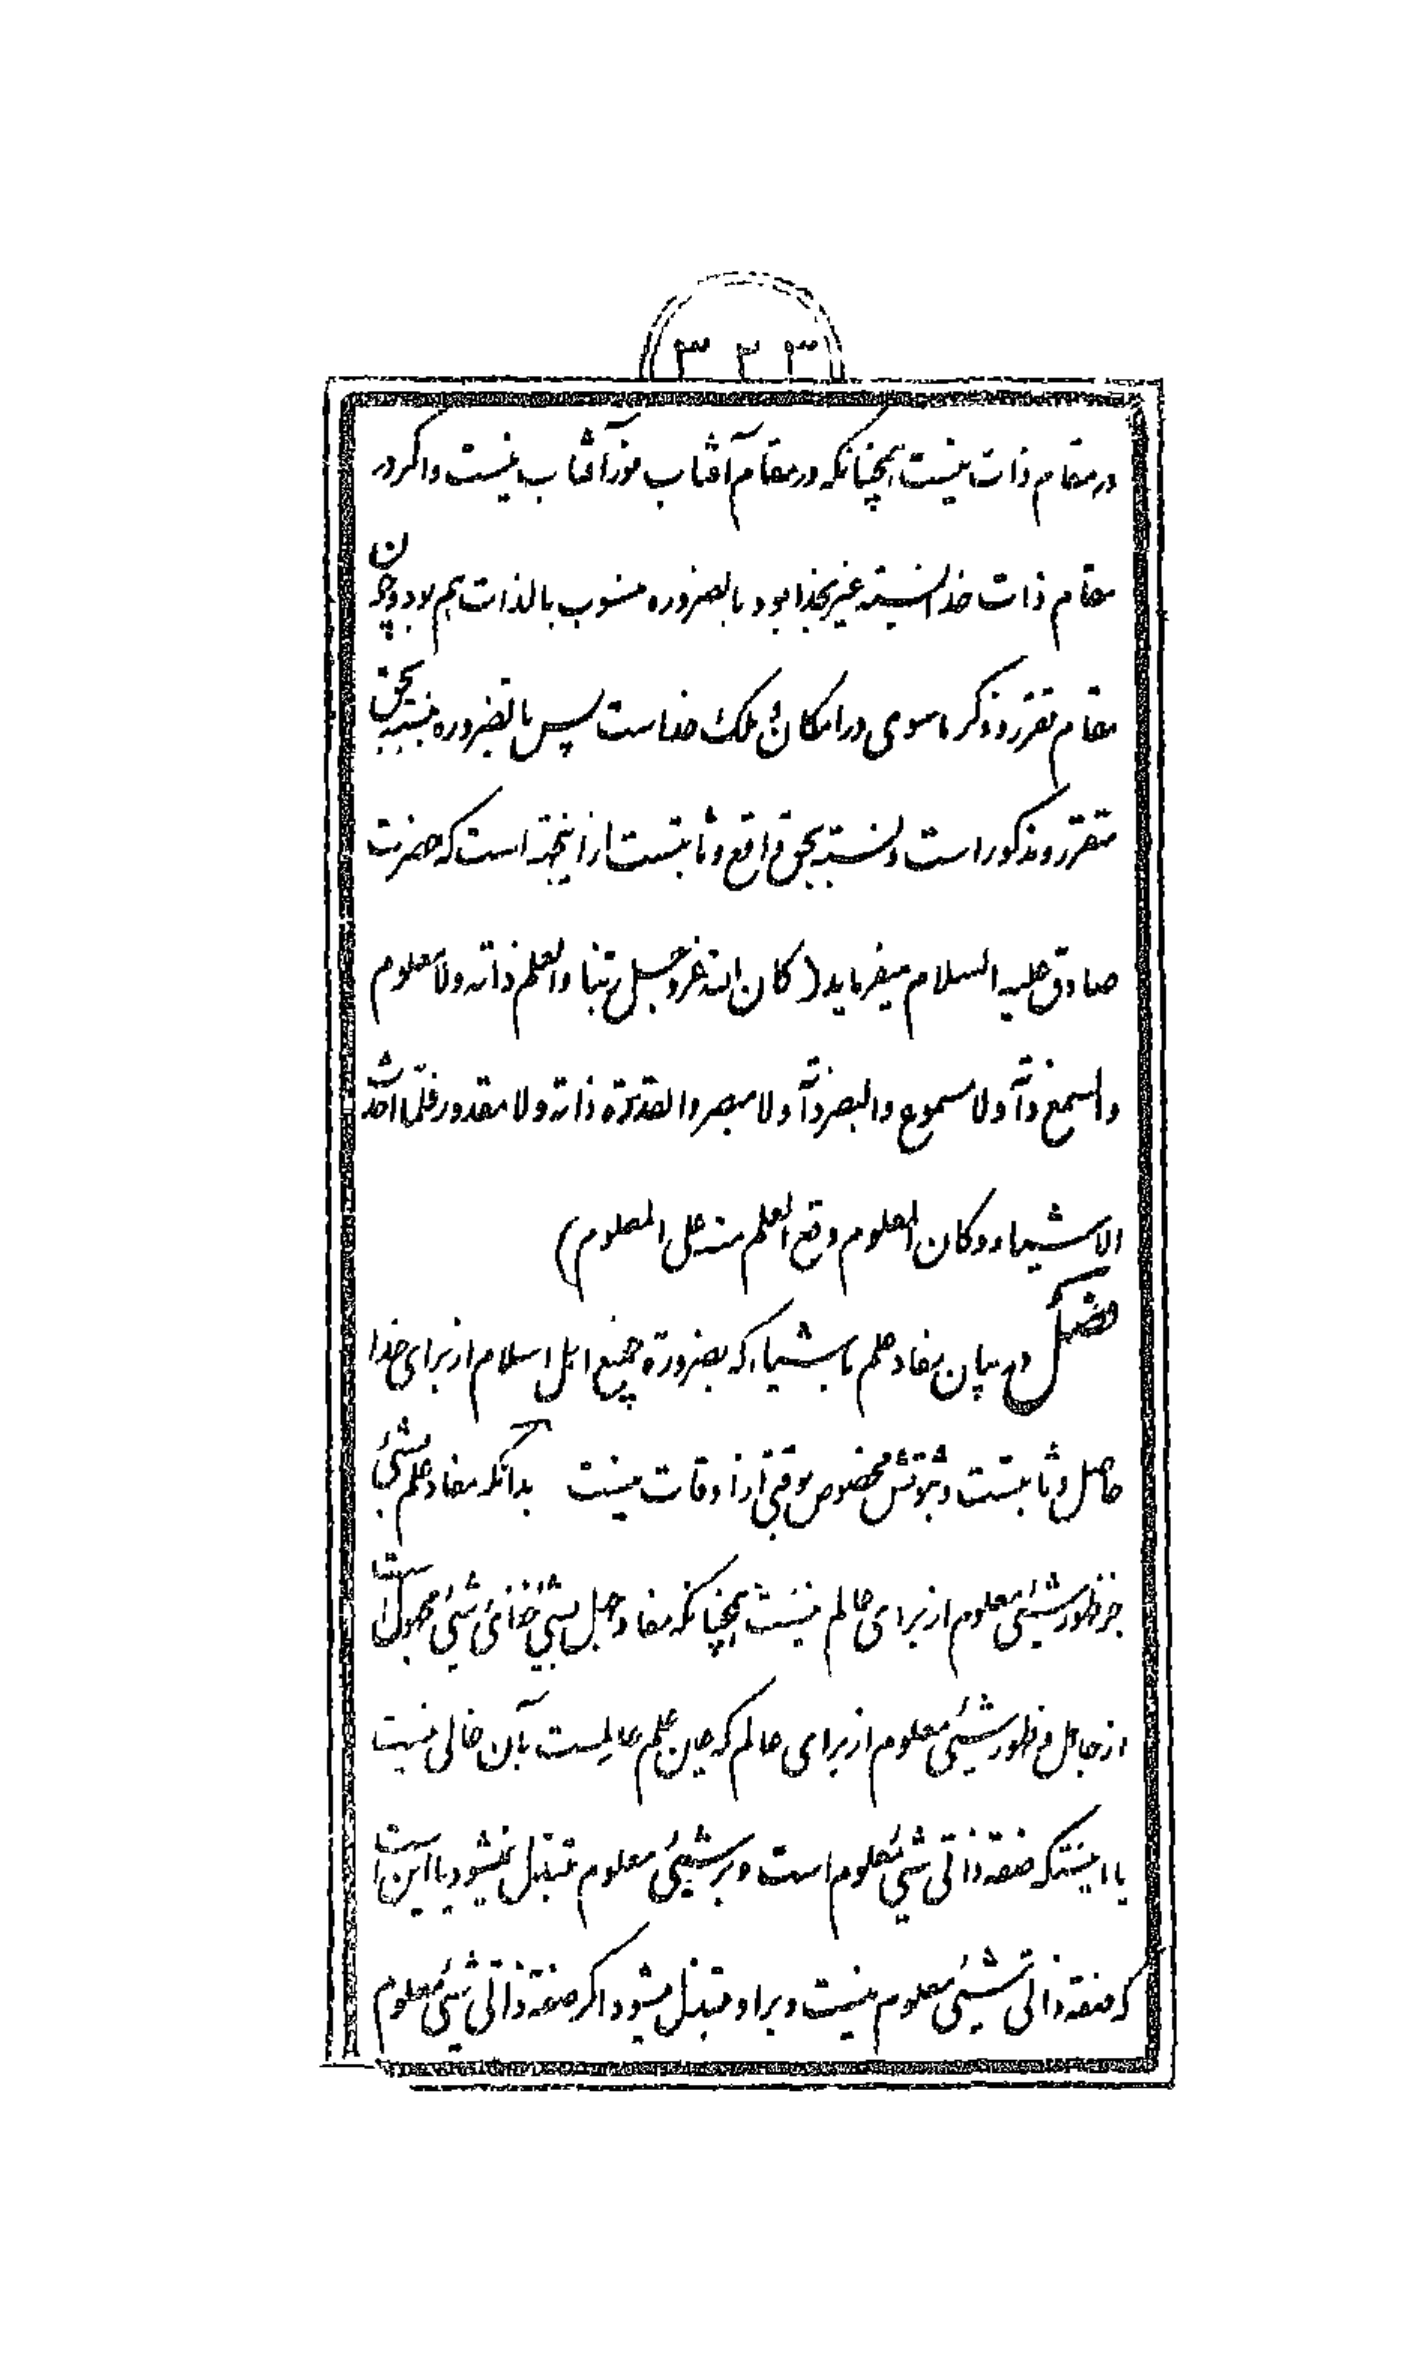 ۳۲۳
در مقام ذات نیست همچنانکه در مقام آفتاب نور آفتاب نیست و اگر در
مقام ذات خدا نسبته غیر بخدا بود بالضروره منسوب بالذات هم بود و چون
مقام تقرر و ذکر ماسوی در امکان و ملک خداست پس بالضروره نسبته بحق
متقرر و مذکور است و نسبته بحق واقع و ثابتست از اینجهته است که حضرت
صادق علیه السلام میفرماید (کان الله عز و جل ربنا و العلم ذاته و لا معلوم
و السمع ذاته و لا مسموع و البصر ذاته و لا مبصر و القدرة ذاته و لا مقدور فلما احدث
الاشیاء و کان المعلوم وقع العلم منه علی المعلوم)
فصل در بیان مفاد علم باشیاء که بضرورة جمیع اهل اسلام از برای خدا
حاصل و ثابتست و ثبوتش مخصوص بوقتی از اوقات نیست بدانکه مفاد علم بشیئ
جز ظهور شیئی معلوم از برای عالم نیست همچنانکه مفاد جهل بشیئ خفائ شیئ مجهول است
از جاهل و ظهور شیئی معلوم از برای عالم که حین علم عالمست بآن خالی نیست
یا اینستکه صفته ذاتی شیئ معلوم است و بر شیئی معلوم متبدل نمیشود یا این است
که صفته ذاتی شیئی معلوم نیست و بر او متبدل میشود اگر صفته ذاتی شیئ معلوم